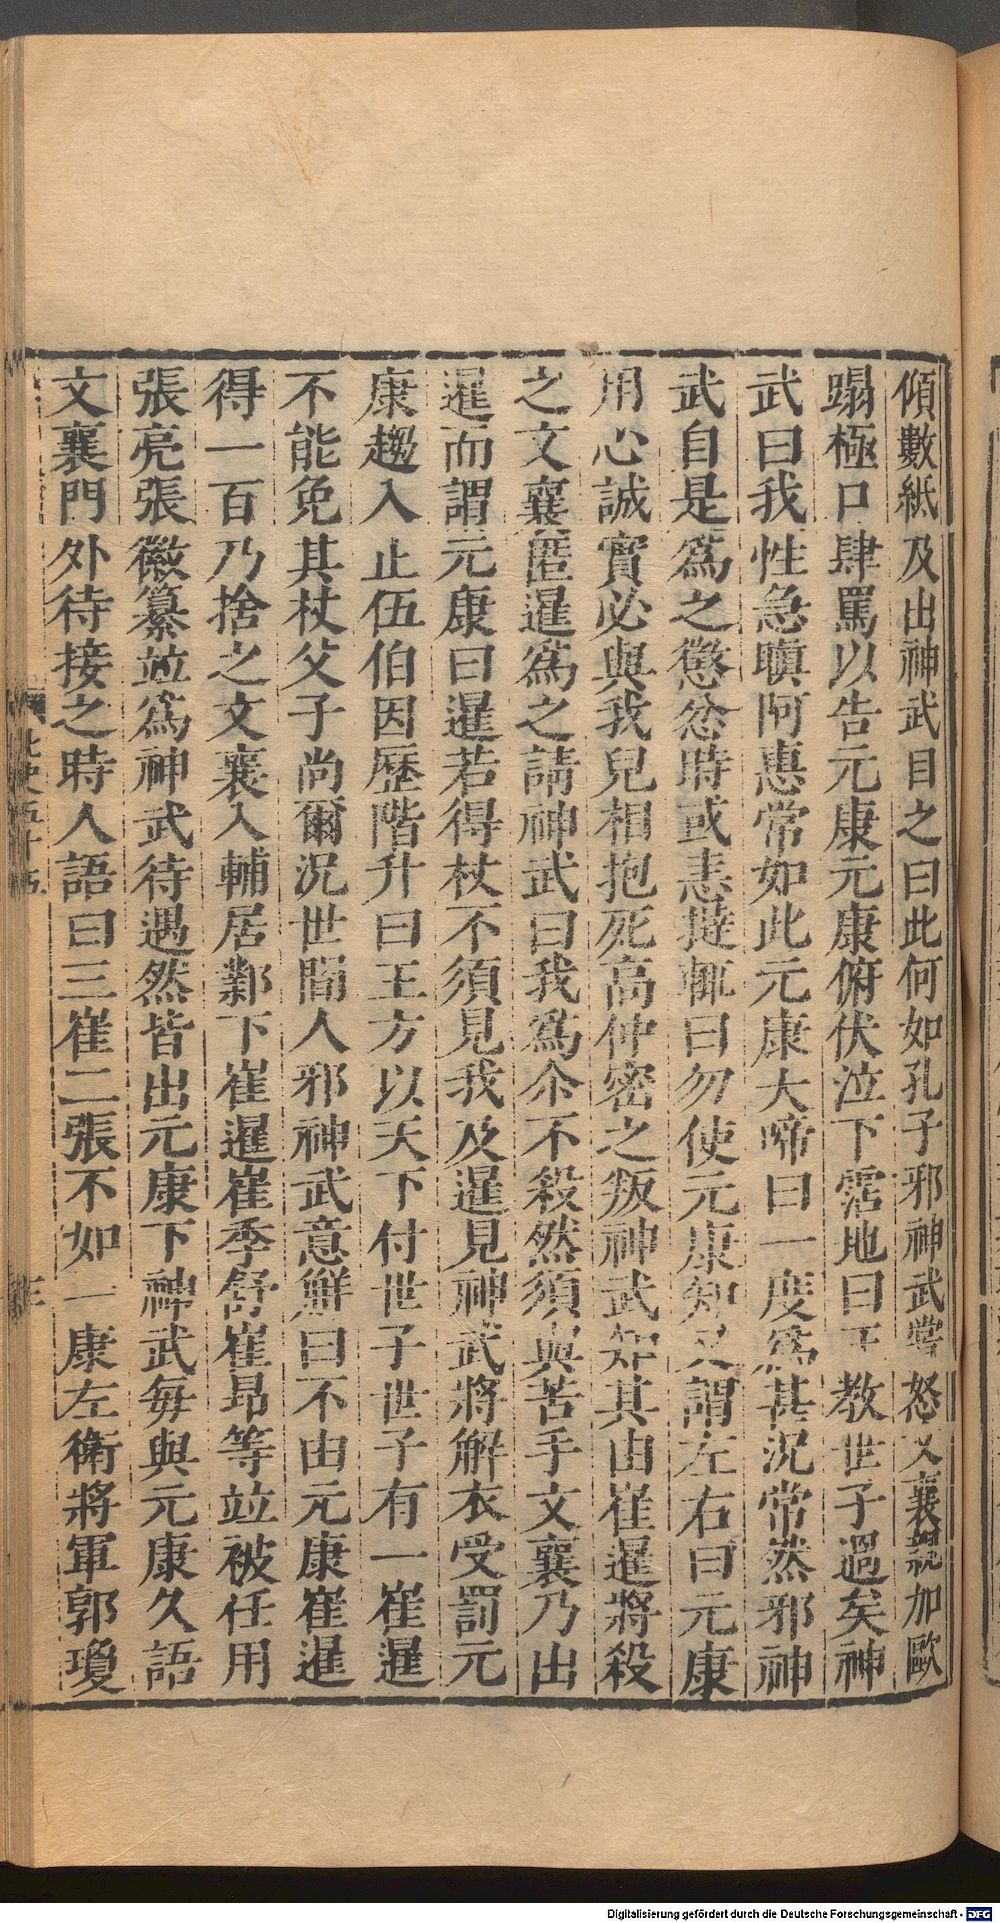 傾數紙及出神武目之曰此何如孔子邪神武嘗怒文襄親加毆
蹋極口肆罵以告元康元康俯伏泣下霑地曰王教世子過矣神
武曰我性急瞋阿惠常如此元康大啼曰一度爲甚況常然邪神
武自是爲之懲忿時或恚撻輒曰勿使元康知又謂左右曰元康
用心誠實必與我兒相抱死高仲密之叛神武知其由崔暹將殺
之文襄匿暹爲之請神武曰我爲尒不殺然須與苦手文襄乃出
暹而謂元康曰暹若得杖不須見我及暹見神武將解衣受罰元
康趨入止伍伯因歷階升曰王方以天下付世子世子有一崔暹
不能免其杖父子尚爾況世間人邪神武意解曰不由元康崔暹
得一百乃捨之文襄入輔居鄴下崔暹崔季舒崔昂等竝被任用
張亮張徽纂竝爲神武待遇然皆出元康下神武每與元康久語
文襄門外待接之時人語曰三崔二張不如一康左衛將軍郭瓊
北史五十五
三
Digitalisierung gefördert durch die Deutsche Forschungsgemeinschaft - DFG